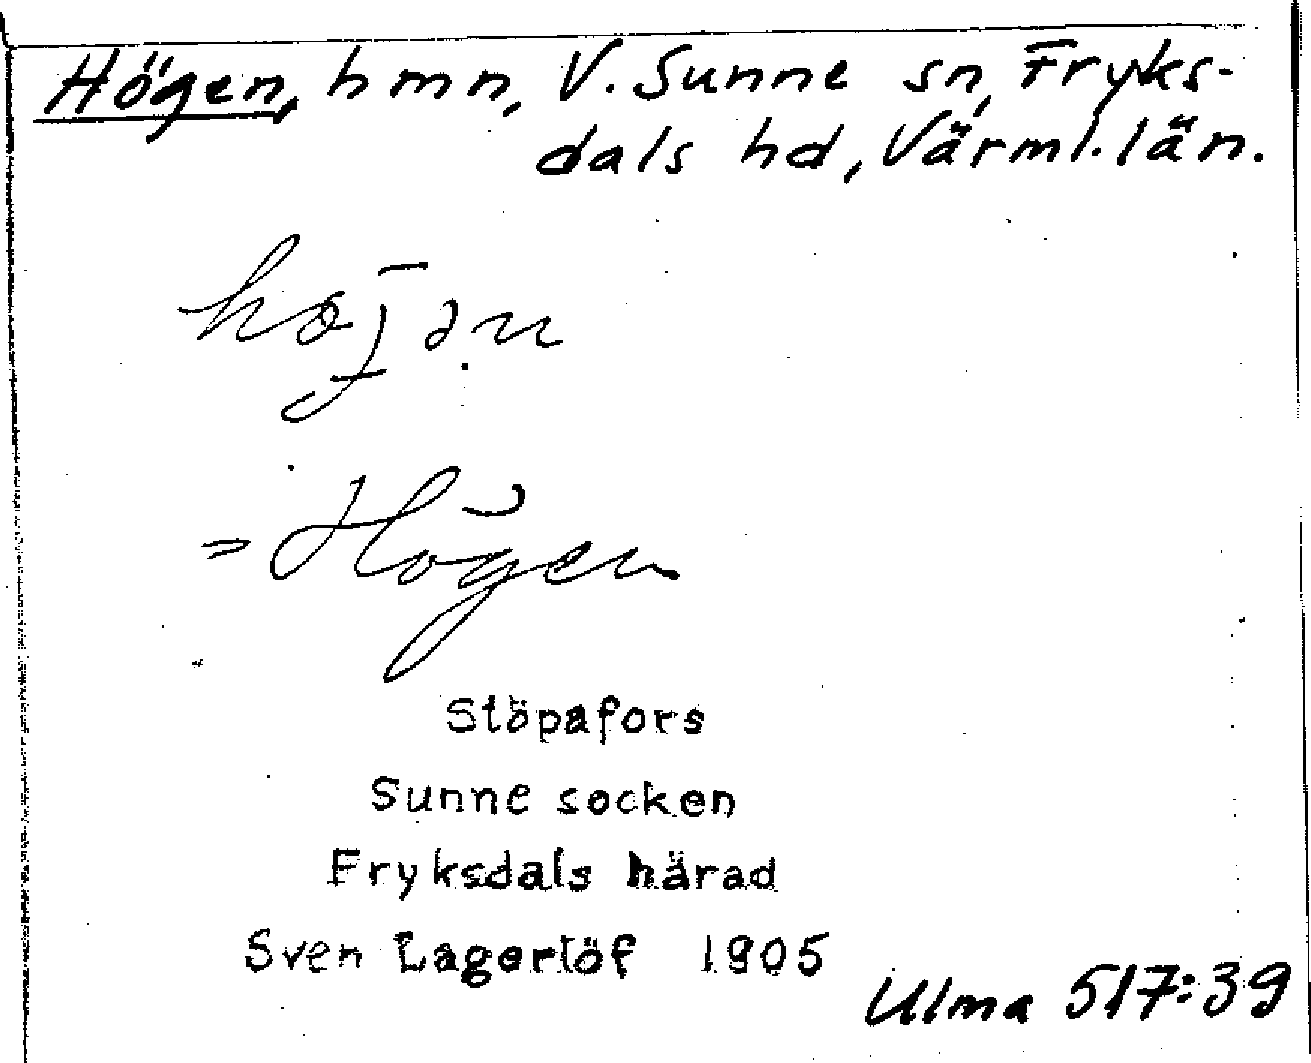 Högen, hmn, V. Sunne sn, Fryks-
dals hd, Värml. län.
= Högen
Stöpafors
Sunne socken
Fryksdals härad
Sven Lagerlöf 1905
Ulma 517:39